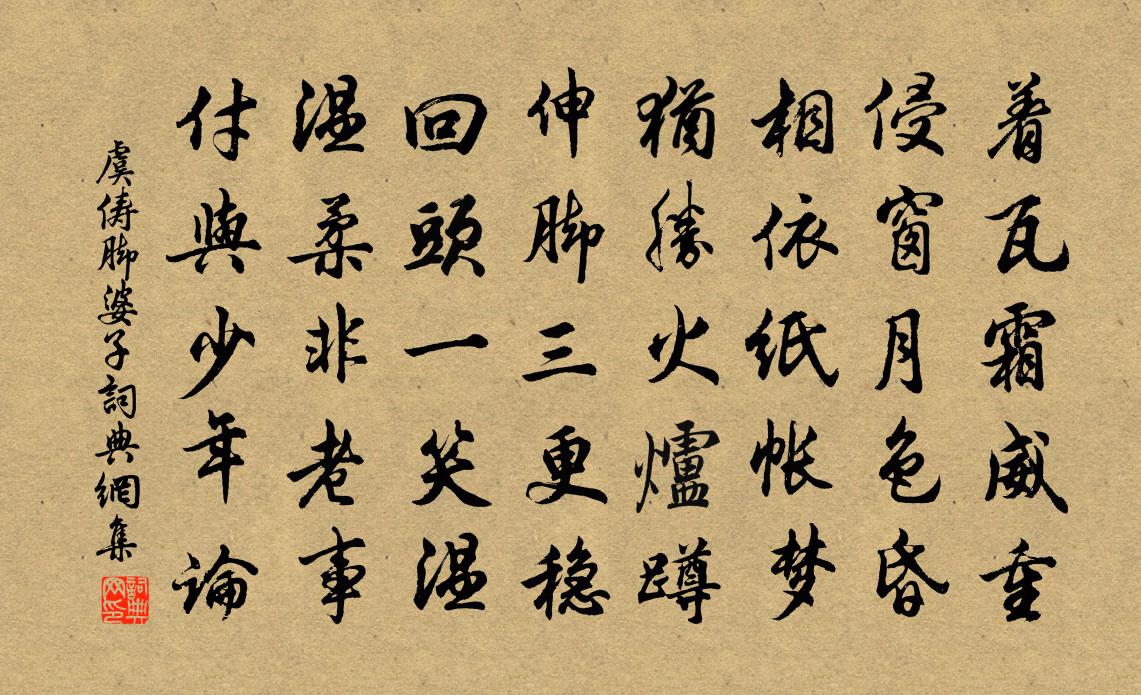 着瓦霜威重
侵窗月色昏
相依纸帐梦
犹勝火爐蹲
伸脚三更稳
回頭一笑温
温柔非老事
付與少年論
虞儔脚婆子詞典網集
詞典網印